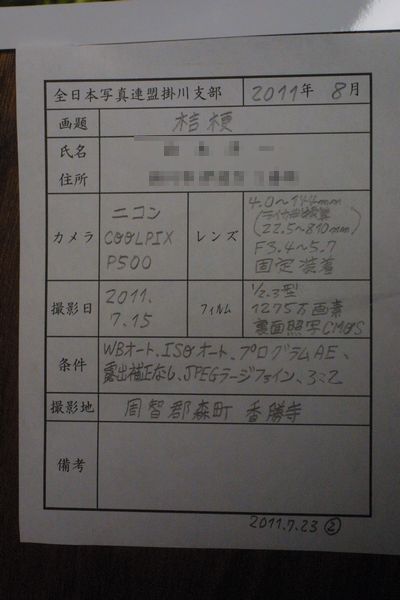 全日本写真連盟掛川支部 2011年 8月
画題 桔梗
氏名
住所
カメラ ニコン COOLPIX P500
レンズ 4.0〜144mm (ライカ判換算 22.5〜810mm) F3.4〜5.7 固定装着
撮影日 2011. 7.15
フィルム 1/2.3型 1275万画素 裏面照写CMOS
条件 WBオート、ISOオート、プログラムAE、露出補正なし、JPEGラージファイン、3:2
撮影地 周智郡森町 香勝寺
備考
2011.7.23 ②